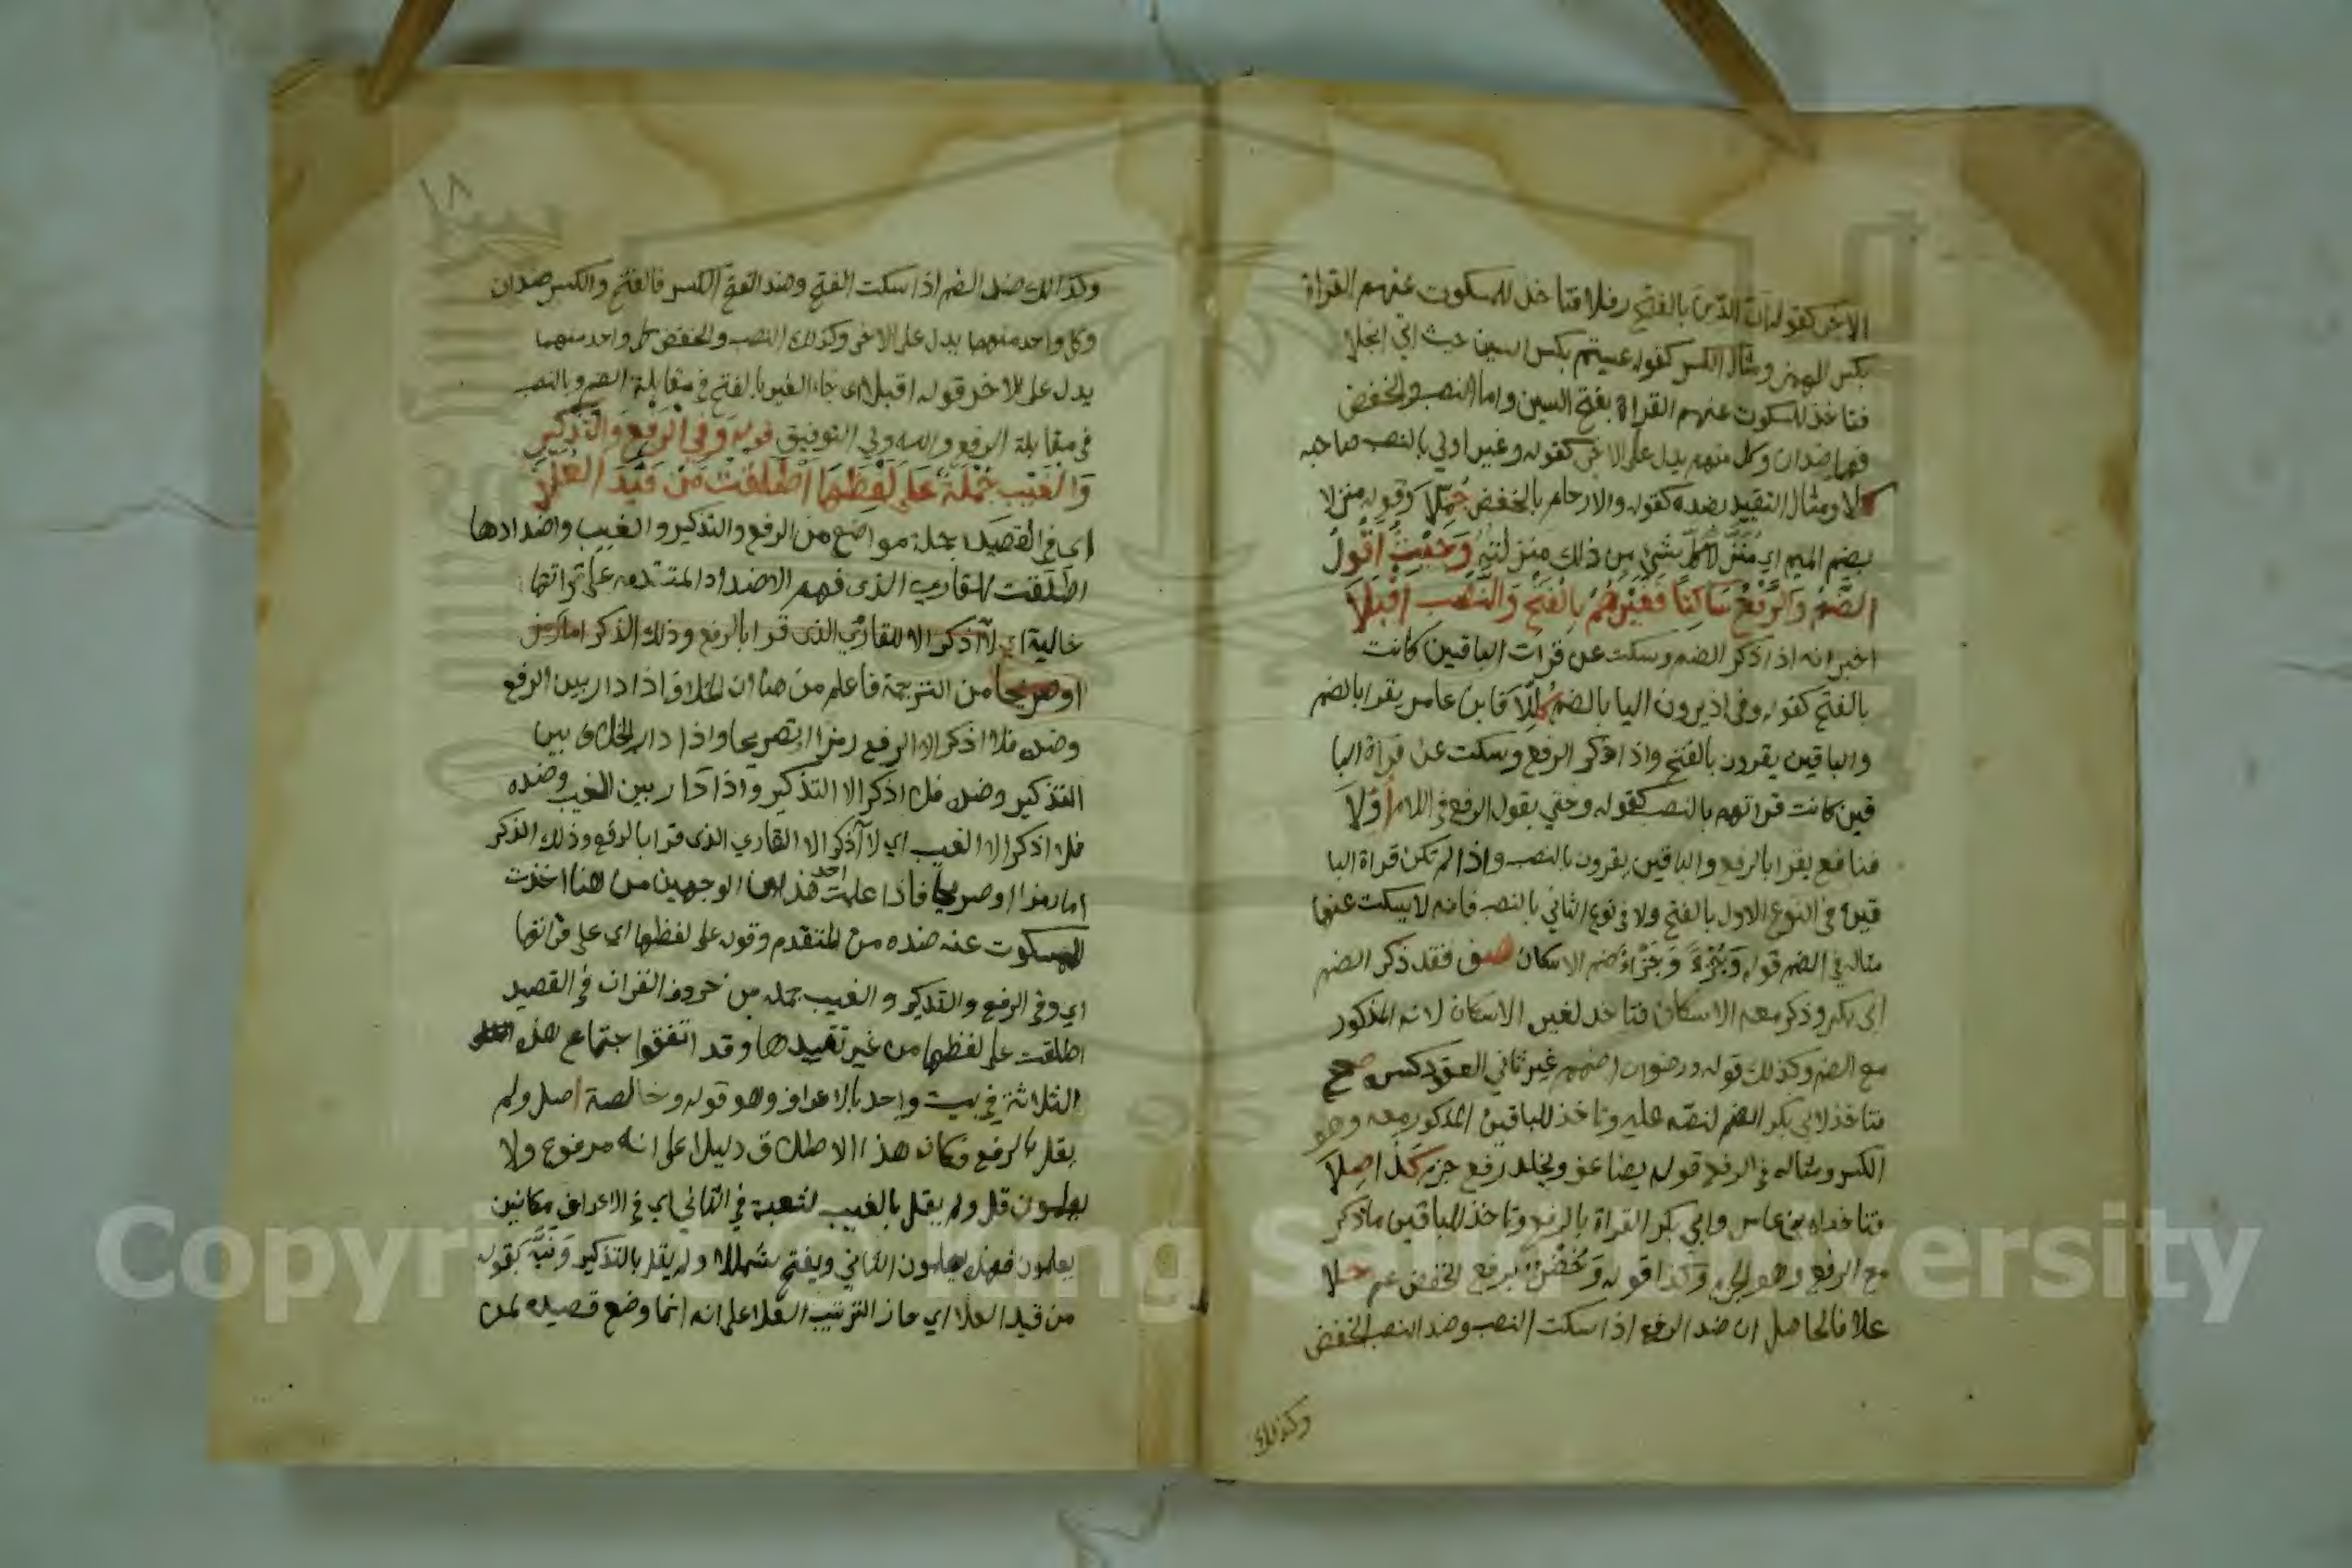 الاخر كقوله ان الدين بالفتح رفلا فتاخذ للمسكوت عنهم القراة
بكسر الهمز ومثال الكسر كقوله عسيتم بكسر السين حيث اتي انجلا
فتاخذ للمسكوت عنهم القراة بفتح السين واما النصب والخفض
فهما ضدان وكل منهم يدل على الاخر كقوله وغير اولي بالنصب صاحبه
كلا ومثال التقييد بضده كقوله والارحام بالخفض جملا وقوله منزلا
بضم الميم اي منزلا كل شي من ذلك منزلته وَحَيْثُ اَقُولُ
الضَّمُّ وَالرَّفْعُ سَاكِتًا فَغَيْرُهُمُ بِالْفَتْحِ وَالنَّصْبِ اَقْبَلَا
اخبر انه اذا ذكر الضم وسكت عن قرات الباقين كانت
بالفتح كقوله وفي اذ يرون اليا بالضم كللا فابن عامر يقرا بالضم
والباقين يقرون بالفتح واذا ذكر الرفع وسكت عن قراة البا
قين كانت قراتهم بالنصب كقوله وحتي يقول الرفع في اللام اولا
فنافع يقرا بالرفع والباقين يقرون بالنصب واذا لم تكن قراة البا
قين في النوع الاول بالفتح ولا في نوع الثاني بالنصب فانه لا يسكت عنها
مثاله في الضم قوله وجزءا وجزء ضم الاسكان صف فقد ذكر الضم
ابي بكر وذكر معه الاسكان فتاخذ لغير الاسكان لانه المذكور
مع الضم وكذلك قوله ورضوان اضمم غير ثاني العقود كسره صح
فتاخذ لابي بكر الضم لنصه عليه وتاخذ للباقين المذكور معه وهو
الكسر ومثاله في الرفع قوله يضاعف ويخلد رفع جزم كذا صلا
فتاخذ لابن عامر وابي بكر القراة بالرفع وتاخذ للباقين ما ذكر
مع الرفع وهو الجزم وكذا قوله وخضر برفع الخفض عم حلا
علا فالحاصل ان ضد الرفع اذا سكت النصب وضد النصب الخفض
وكذلك
١٨
وكذالك ضد الضم اذا سكت الفتح وضد الفتح الكسر فالفتح والكسر ضدان
وكل واحد منهما يدل على الاخر وكذلك النصب والخفض كل واحد منهما
يدل على الاخر قوله اقبلا اي جاء الغير بالفتح في مقابلة الضم وبالنصب
في مقابلة الرفع والله ولي التوفيق قوله وَفِي الرَّفْعِ وَالتَّذْكِيرِ
وَالْغَيْبِ جُمْلَةٌ عَلَى لَفْظِهَا اَطْلَقْتُ مَنْ قَيَّدَ الْعُلَا
اي في القصيد جملة مواضع من الرفع والتذكير والغيب واضدادها
اطلقت للقاري الذي فهم الاضداد المتقدمه على قراتها
خالية اي لا اذكر الا للقاري الذي قرا بالرفع وذلك الذكر اما رمز
او صريحا من الترجمة فاعلم من هنا ان الخلاف اذا دار بين الرفع
وضده فلا اذكر الا الرفع رمزا او تصريحا واذا دار الخلاف بين
التذكير وضده فلا اذكر الا التذكير واذا دار بين الغيب وضده
فلا اذكر الا الغيب اي لا اذكر الا القاري الذي قرا بالرفع وذلك الذكر
اما رمزا او صريحا فاذا علمت احد هذين الوجهين من هنا اخذت
للمسكوت عنه ضده من المتقدم وقوله على لفظها اي على قراتها
اي وفي الرفع والتذكير والغيب جمله من حروف القران في القصيد
اطلقت على لفظها من غير تقييدها وقد اتفق اجتماع هذه
الثلاثة في بيت واحد بالاعراف وهو قوله وخالصة اصل ولم
يقل بالرفع فكان هذا الاطلاق دليلا على انه مرفوع ولا
يعلمون قل ولم يقل بالغيب لشعبة في الثاني اي في الاعراف مكانين
يعلمون فهذه يعلمون الثاني ويفتح شمللا ولم يقل بالتذكير ونبه بقوله
من قيد العلا اي حاز الترتيب العلا على انه انما وضع قصيده لمن
Copyright © King Saud University